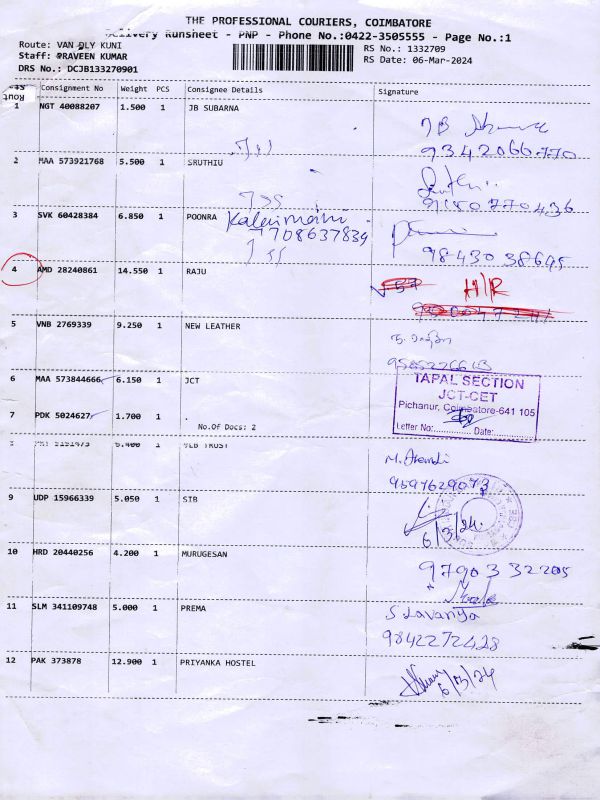 THE PROFESSIONAL COURIERS, COIMBATORE
Delivery Runsheet - PNP - Phone No.:0422-3505555 - Page No.:1
Route: VAN OLY KUNI
RS No.: 1332709
Staff: PRAVEEN KUMAR
RS Date: 06-Mar-2024
DRS No.: DCJB133270901
Consignment No Weight PCS Consignee Details Signature
1 NGT 40088207 1.500 1 JB SUBARNA
JB
9342066770
2 MAA 573921768 5.500 1 SRUTHIU
9180770436
3 SVK 60428384 6.850 1 POONRA
Kaleirmani
7708637839
98430 38645
4 AMD 28240861 14.550 1 RAJU
H/R
5 VNB 2769339 9.250 1 NEW LEATHER
6 MAA 573844666 6.150 1 JCT
TAPAL SECTION
JCT-CET
Pichanur, Coimbatore-641 105
Letter No:............... Date:............
7 PDK 5024627 1.700 1 .
No.Of Docs: 2
TRUST
M.
9597629073
9 UDP 15966339 5.050 1 SIB
6/3/24.
10 HRD 20440256 4.200 1 MURUGESAN
97903 32205
11 SLM 341109748 5.000 1 PREMA
S Lavanya
9842272428
12 PAK 373878 12.900 1 PRIYANKA HOSTEL
6/3/24